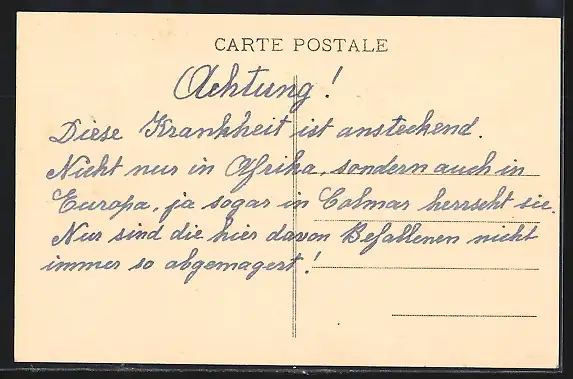 CARTE POSTALE
Achtung!
Diese Krankheit ist ansteckend.
Nicht nur in Afrika, sondern auch in
Europa, ja sogar in Colmar herrscht sie.
Nur sind die hier davon Befallenen nicht
immer so abgemagert!